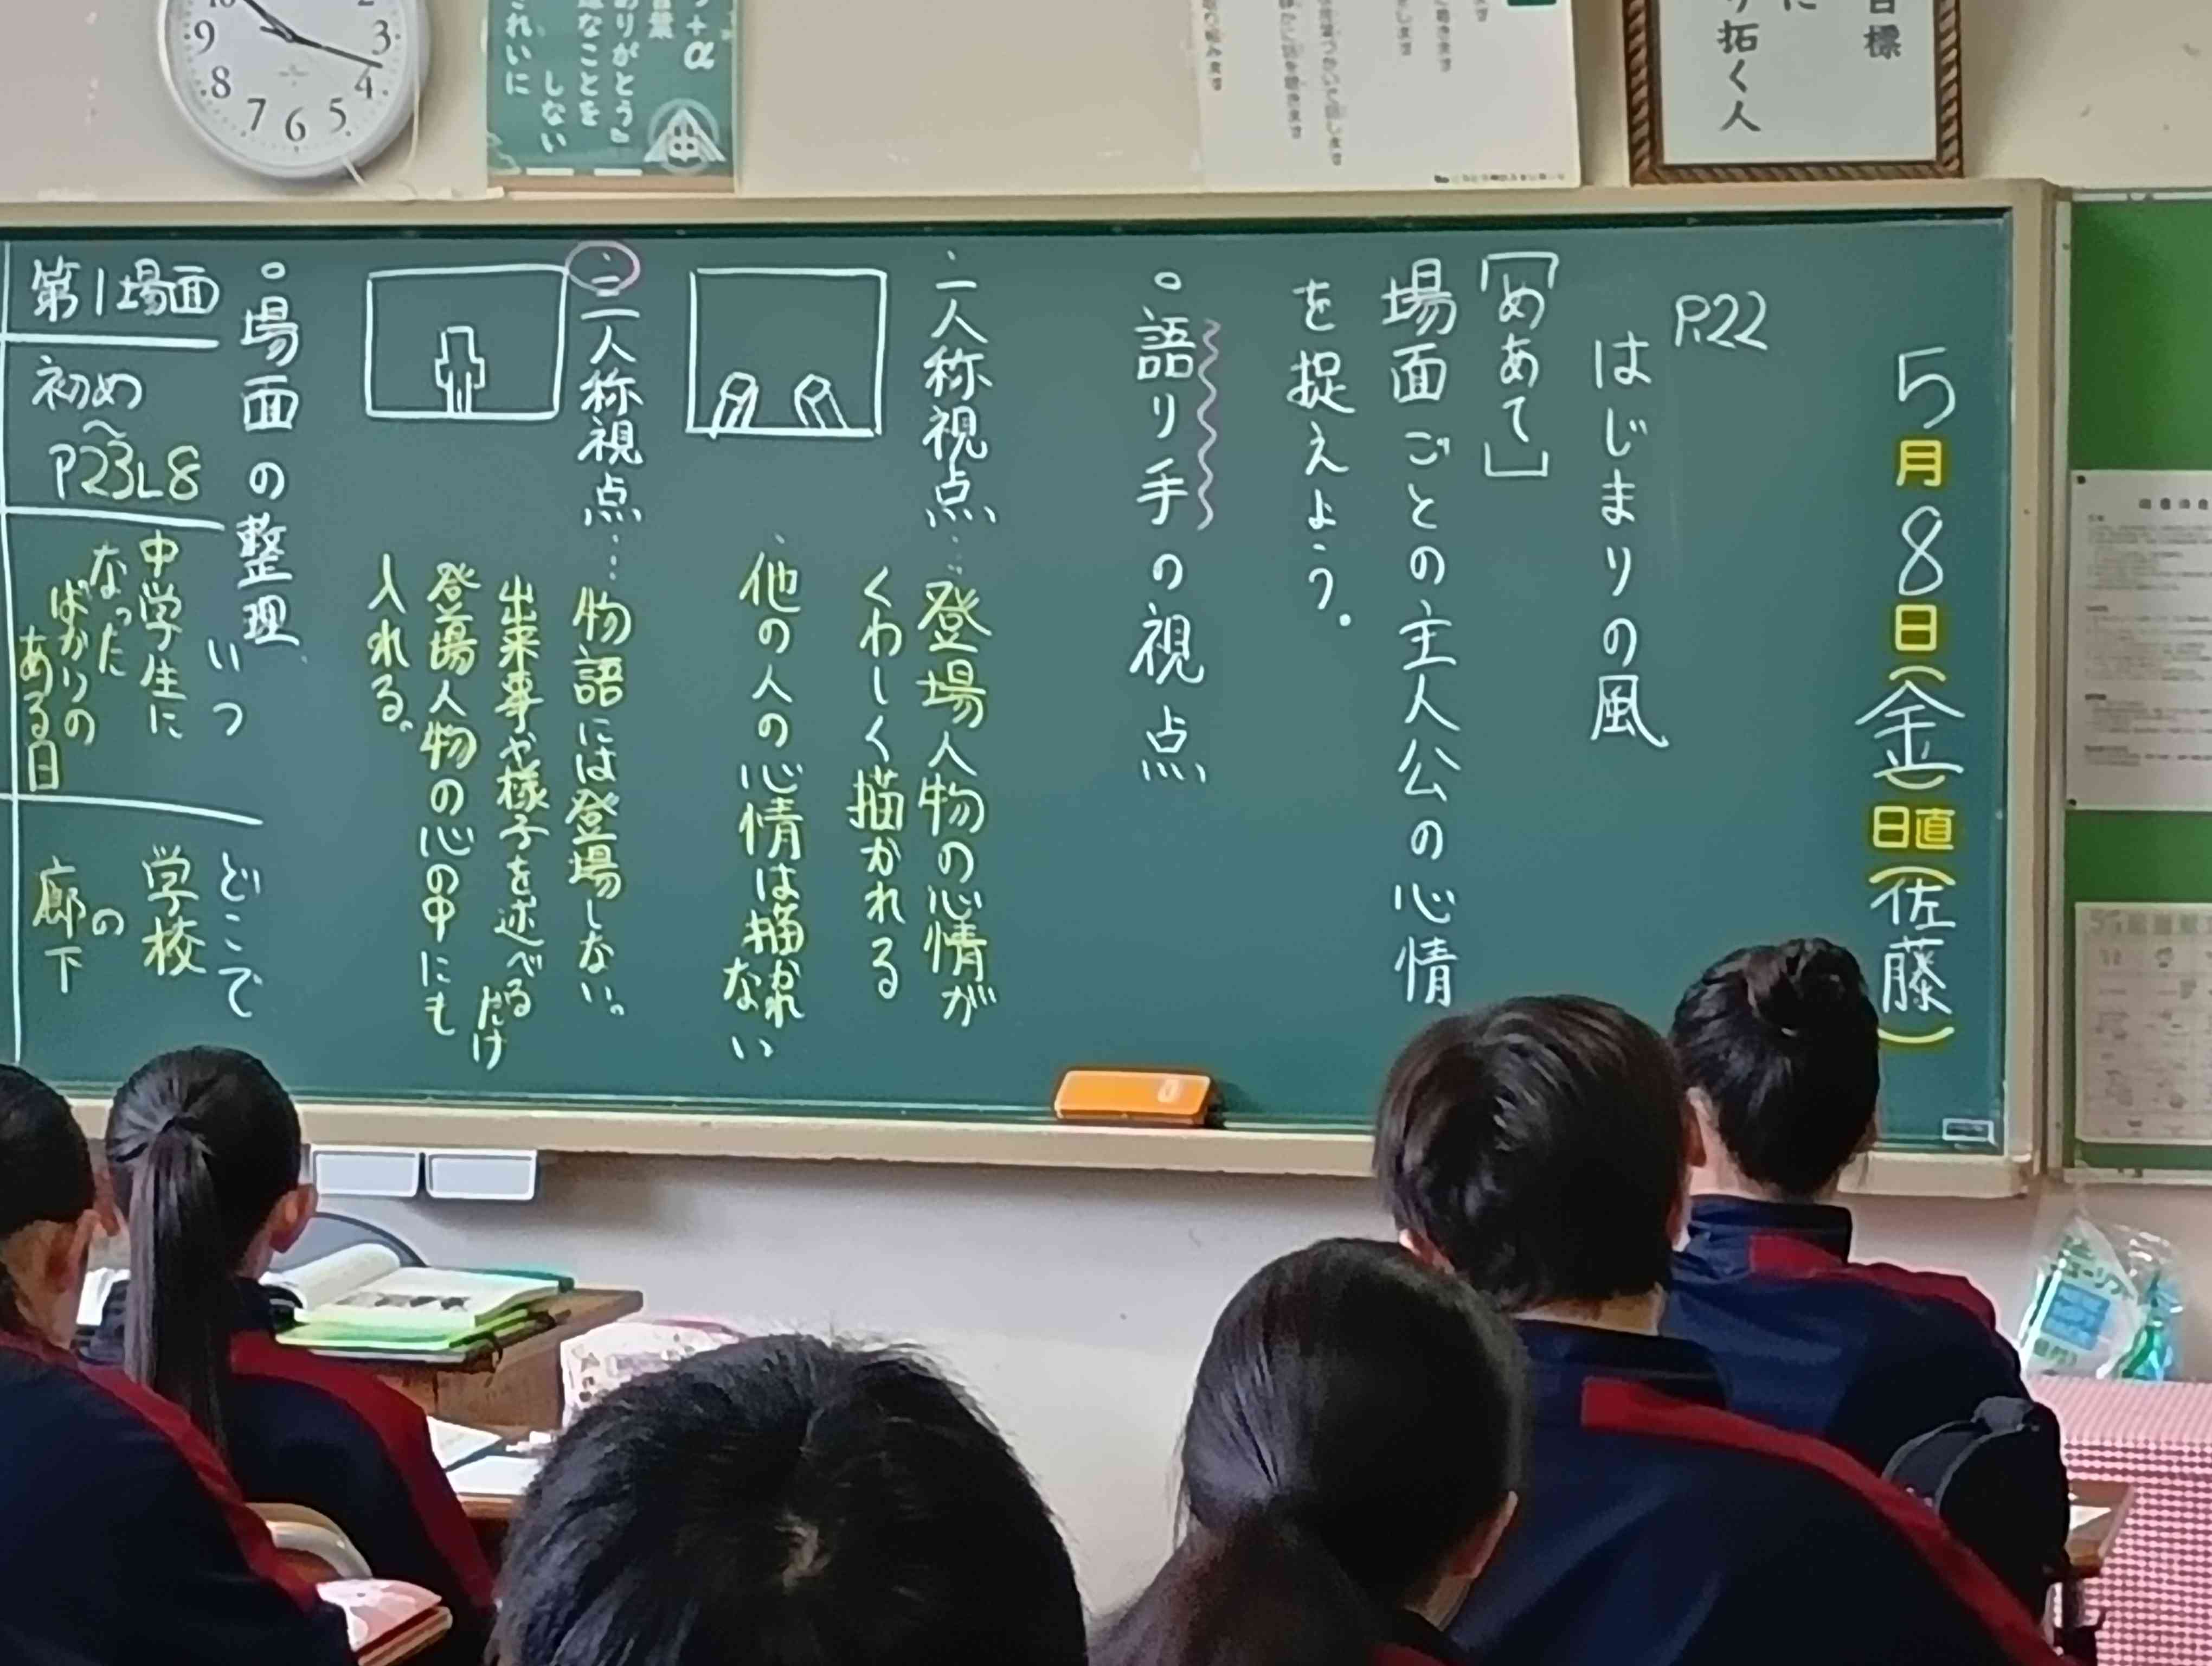 5月8日(金)日直(佐藤)
P.22
はじまりの風
「めあて」
場面ごとの主人公の心情
を捉えよう。
。語り手の視点
・一人称視点…登場人物の心情が
くわしく描かれる
・他の人の心情は描かれ
ない
・三人称視点…物語には登場しない。
出来事や様子を述べる
だけ
登場人物の心の中にも
入れる。
。場面の整理
いつ
どこで
第1場面
初め
〜
P23L8
中学生に
なった
ばかりの
ある日
学校
の
廊下
9
8
7
6
5
4
3
+α
言葉
ありがとう』
なことを
しない
きれいに
目標
に
り拓く人